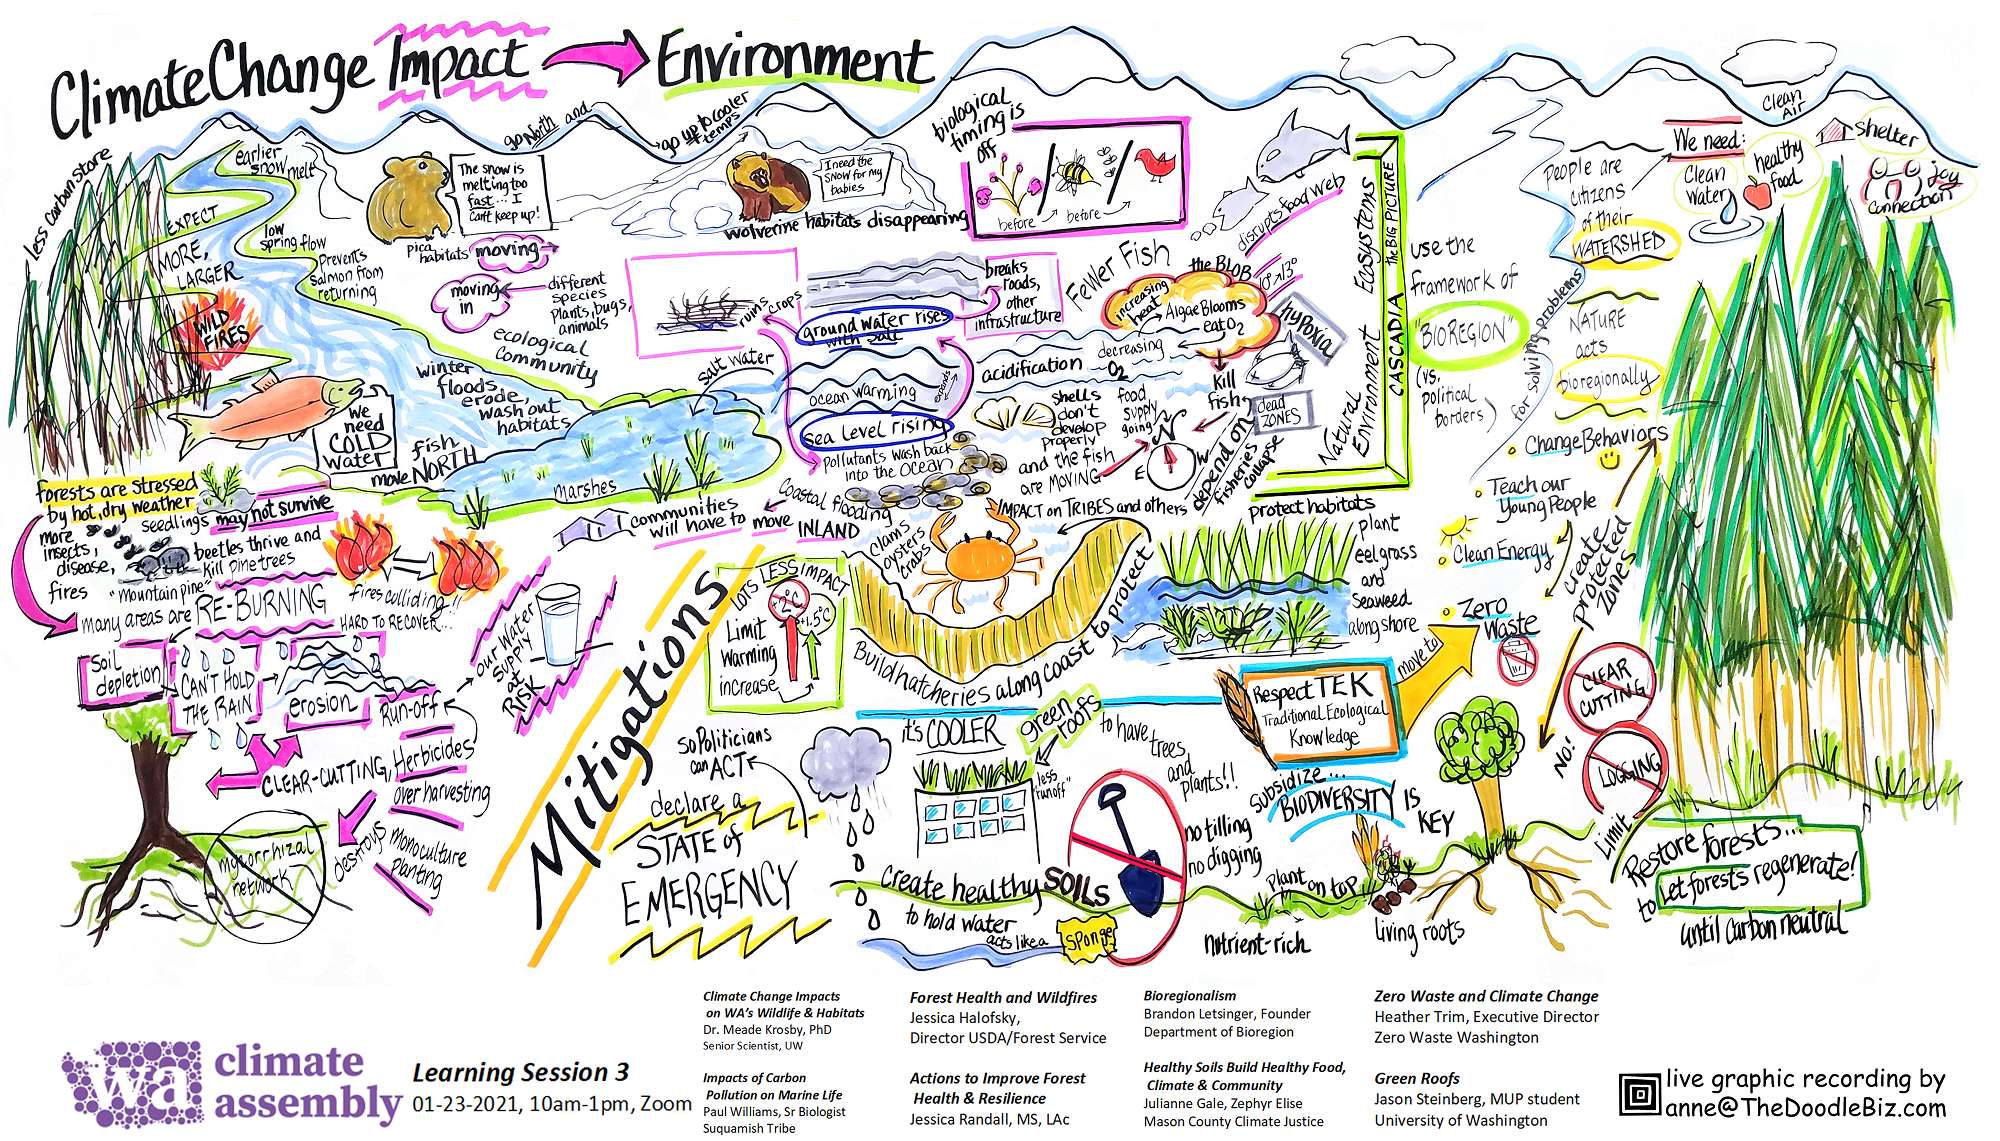 Climate Change Impact
Environment
less carbon store
earlier
snow melt
EXPECT
MORE,
LARGER
WILD
FIRES
low
spring flow
Prevents
Salmon from
returning
The snow is
melting too
fast... I
Can't keep up!
go North and
go up to cooler
temps
pica
habitats moving
moving
in
different
species
plants, bugs,
animals
ecological
community
I need the
SNOW for my
babies
wolverine habitats disappearing
biological
timing is
off
before
before
disrupts food web
ruins crops
breaks
roads,
other
infrastructure
ground water rises
with salt
salt water
ocean warming
expands
sea level rising
pollutants wash back
into the ocean
Fewer Fish
the BLOB
10° > 13°
increasing
heat
Algae Blooms
eat O₂
hypoxia
acidification
decreasing
O₂
shells
don't
develop
properly
food
supply
going
Kill
fish
dead
ZONES
and the fish
are MOVING
N
W
E
depend on
fisheries
collaps
Natural
Environment
Ecosystems
CASCADIA
the BIG PICTURE
we
need
COLD
water
winter
floods,
erode,
wash out
habitats
fish
move NORTH
marshes
communities
will have to move INLAND
Coastal flooding
clams
oysters
crabs
IMPACT on TRIBES and others
forests are stressed
by hot, dry weather
seedlings may not survive
more
insects,
disease,
fires
beetles thrive and
kill pine trees
"mountain pine"
fires colliding!!
many areas are RE-BURNING
HARD TO RECOVER...
soil
depletion
CAN'T HOLD
THE RAIN
erosion
Run-off
our water
supply
at
RISK
CLEAR-CUTTING, Herbicides
over harvesting
destroys
monoculture
planting
mycorrhizal
network
Mitigations
LOTS LESS IMPACT
+2°C
+1.5°C
Limit
Warming
increase
Build hatcheries along coast to protect
protect habitats
plant
eelgrass
and
seaweed
along shore
Respect TEK
Traditional Ecological
Knowledge
move to
so Politicians
can ACT
declare a
STATE of
EMERGENCY
it's COOLER
green
roofs
to have
trees
and
plants!!
less
"runoff"
create healthy SOILS
to hold water
acts like a
sponge
no tilling
no digging
Subsidize...
BIODIVERSITY IS
KEY
plant on top
nutrient-rich
living roots
use the
framework of
"BIOREGION"
(vs.
political
borders)
for solving problems
People are
citizens
of their
WATERSHED
NATURE
acts
bioregionally
We need:
Clean
Air
shelter
Clean
Water
healthy
food
joy
connection
Change Behaviors
Teach our
Young People
Clean Energy
Zero
Waste
create
protected
zones
NO!
CLEAR
CUTTING
LOGGING
Limit
Restore forests...
to Let forests regenerate!
until carbon neutral
wa
climate
assembly
Learning Session 3
01-23-2021, 10am-1pm, Zoom
Climate Change Impacts
on WA's Wildlife & Habitats
Dr. Meade Krosby, PhD
Senior Scientist, UW
Impacts of Carbon
Pollution on Marine Life
Paul Williams, Sr Biologist
Suquamish Tribe
Forest Health and Wildfires
Jessica Halofsky,
Director USDA/Forest Service
Actions to Improve Forest
Health & Resilience
Jessica Randall, MS, LAc
Bioregionalism
Brandon Letsinger, Founder
Department of Bioregion
Healthy Soils Build Healthy Food,
Climate & Community
Julianne Gale, Zephyr Elise
Mason County Climate Justice
Zero Waste and Climate Change
Heather Trim, Executive Director
Zero Waste Washington
Green Roofs
Jason Steinberg, MUP student
University of Washington
live graphic recording by
anne@TheDoodleBiz.com